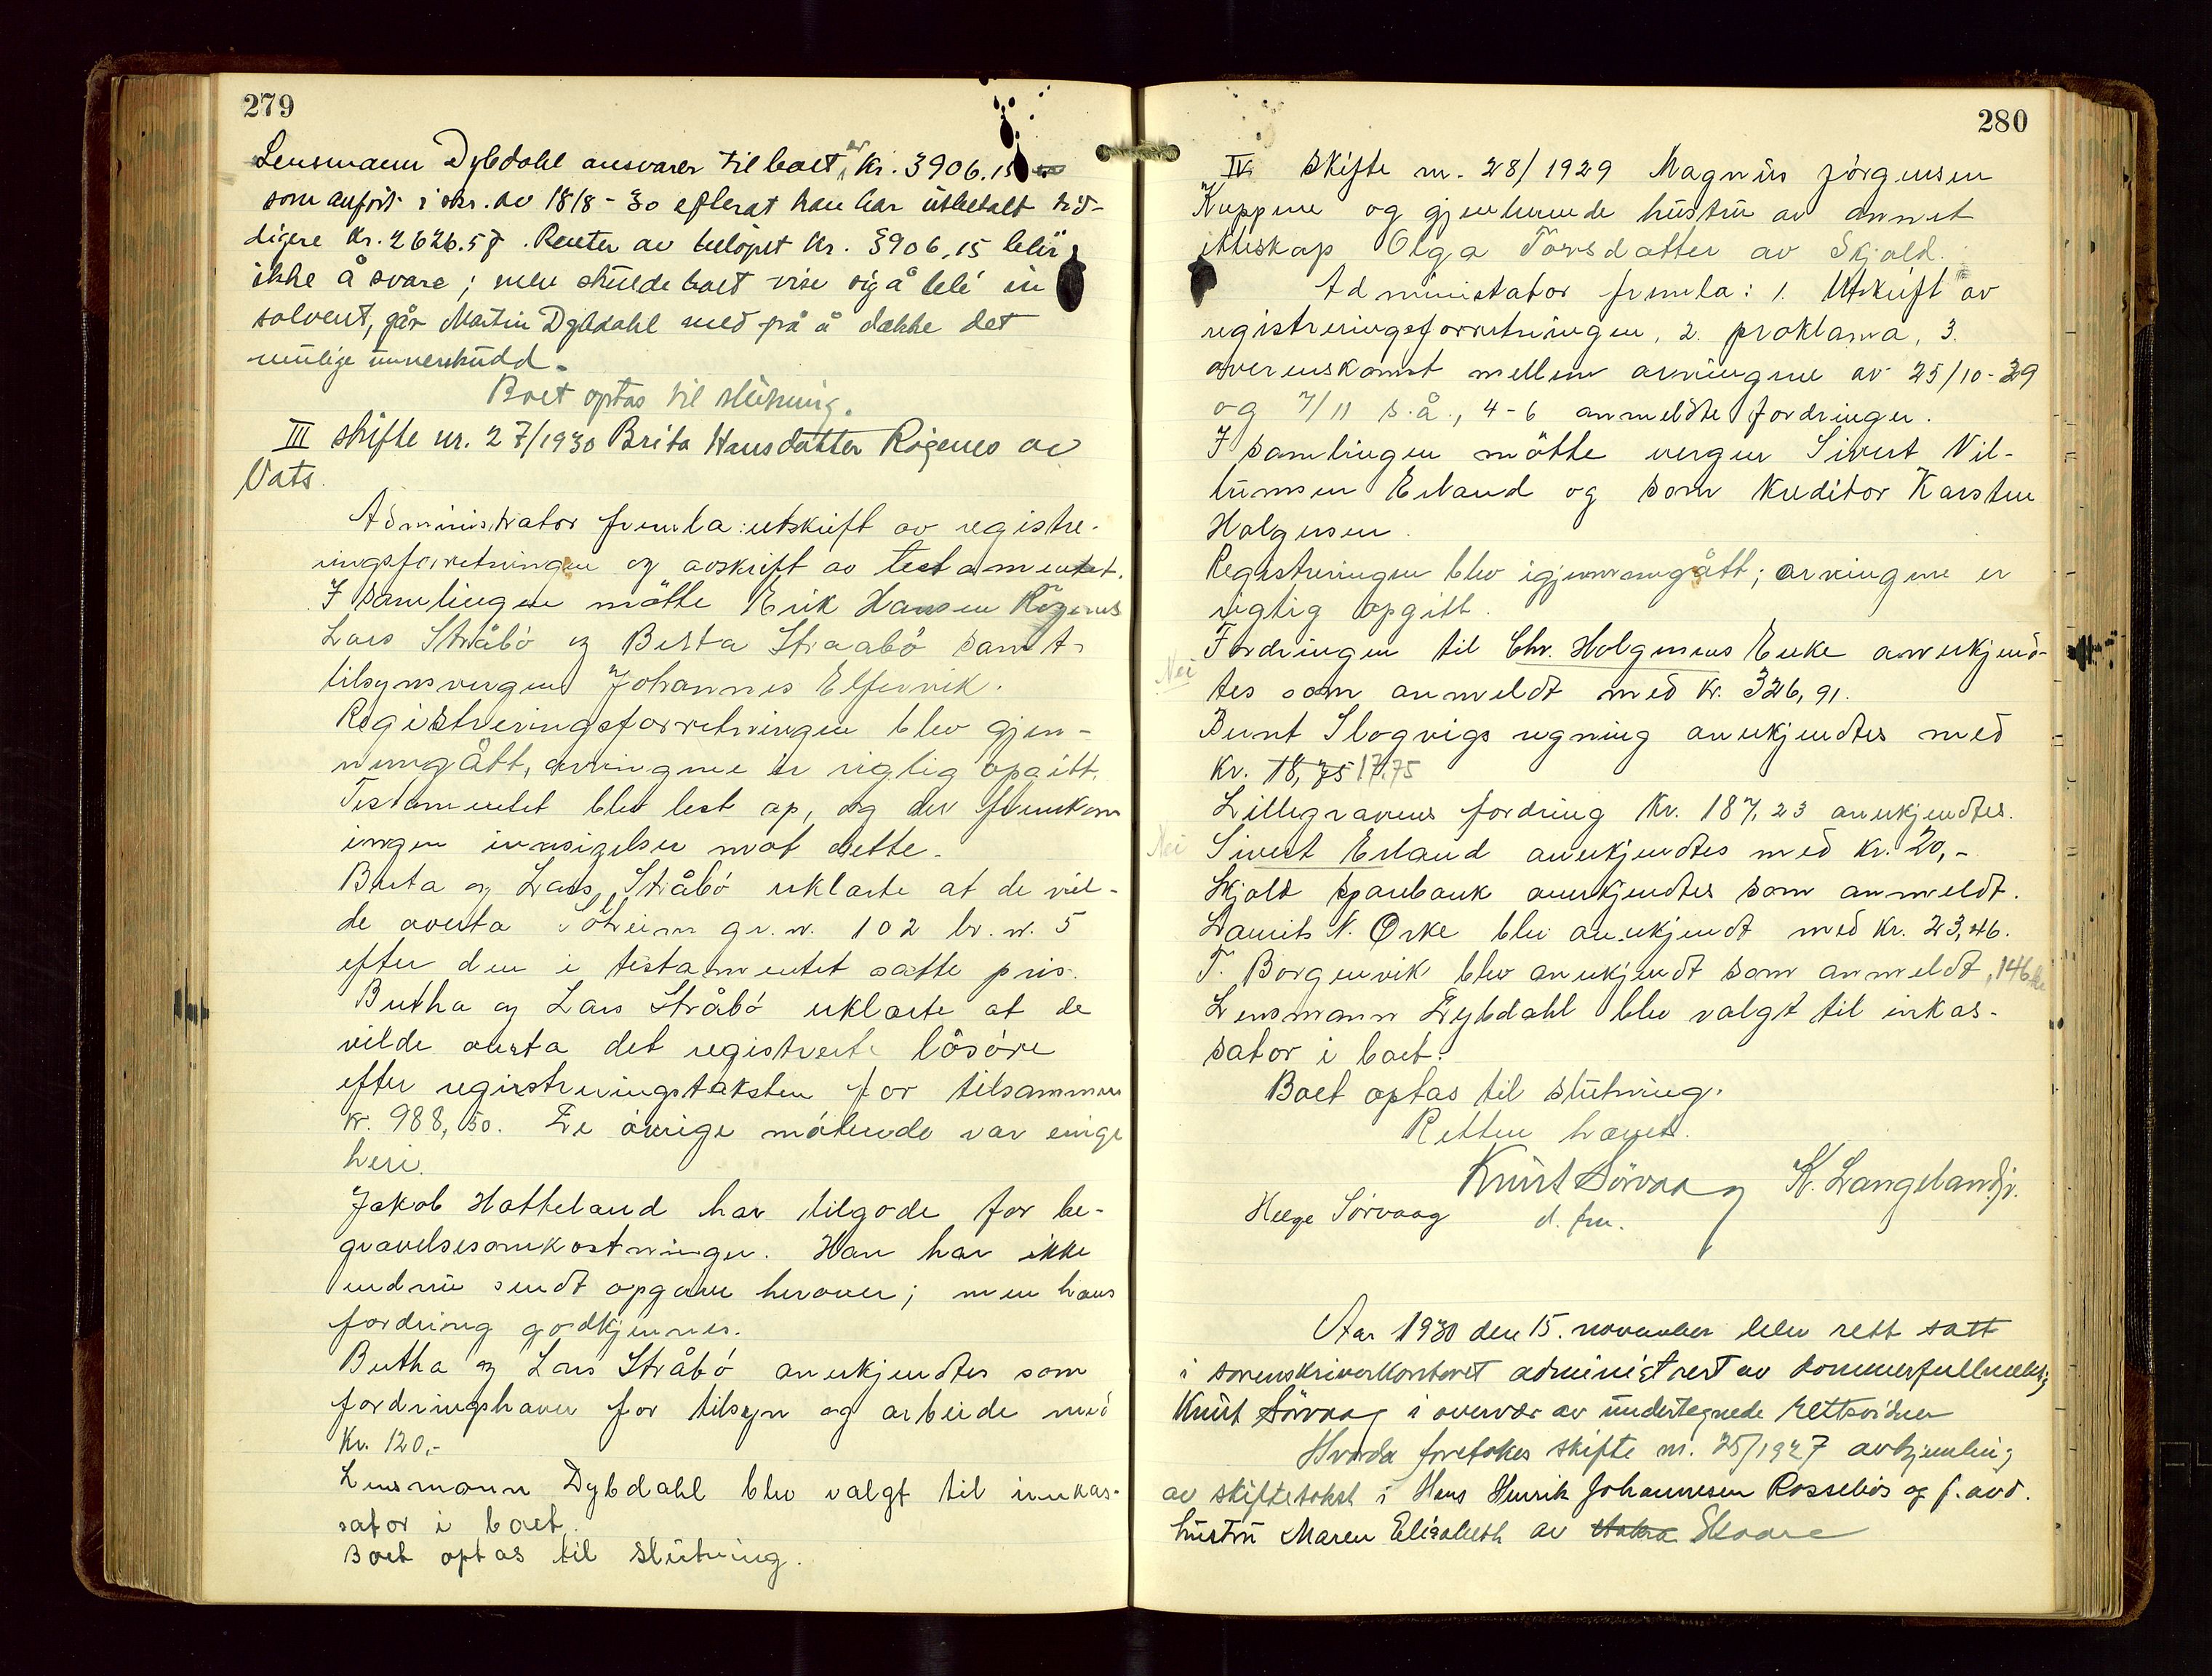 279
Lensmann Dybdahl ansvarer til boet er kr. 3906.15
som anført i skr. av 18/8-30 efterat han har utbetalt tid-
ligere kr. 2626.57. Renter av beløpet kr. 3906,15 blir
ikke å svare; men skulde boet vise sig å bli in
solvent, går Martin Dybdahl med på å dække det
mulige underskudd.
Boet optas til slutning.
III skifte nr. 27/1930 Brita Hansdatter Røgenes av
Vats.
Administrator fremla: utskrift av registre-
ringsforretningen og avskrift av testamentet.
I samlingen møtte Erik Hansen Røgenes
Lars Stråbø og Berta Straabø samt
tilsynsvergen Johannes Elfervik.
Registreringsforretningen blev gjen-
nemgått, arvingene er riglig opgitt.
Testamentet blev lest op, og der fremkom
ingen innsigelser mot dette.
Berta og Lars Stråbø erklærte at de vil-
de overta Sørheim gr. nr. 102 br. nr. 5
efter den i testamentet satte pris.
Bertha og Lars Stråbø erklærte at de
vilde overta det registrerte løsøre
efter registreringstaksten for tilsammen
kr. 988,50. De øvrige møtende var enige
heri.
Jakob Hatteland har tilgode for be-
gravelsesomkostninger. Han har ikke
endnu sendt opgave herover; men hans
fordring godkjennes.
Bertha og Lars Stråbø anerkjendtes som
fordringshaver for tilsyn og arbeide med
Kr. 120,-
Lensmann Dybdahl blev valgt til innkas-
sator i boet.
Boet optas til slutning.
280
IV. Skifte nr. 28/1929 Magnus Jørgensen
Kuppene og gjenlevende hustru av annet
ekteskap Olga Torsdatter av Skjold.
Administator fremla: 1. Utskrift av
registreringsforretningen, 2. proklama, 3.
overenskomst mellem arvingene av 25/10-29
og 7/11 s.å., 4-6 anmeldte fordringer.
I samlingen møtte vergen Sivert Vil-
lumsen Erland og som kreditor Karsten
Holgersen.
Registreringen blev igjennemgått; arvingene er
rigtig opgitt.
Fordringen til Chr. Holgersens Enke anerkjend-
Nei
tes som anmeldt med kr. 326,91.
Bernt Slogvigs regning anerkjendtes med
kr. 18,75 17,75
Lillegravens fordring kr. 187,23 anerkjendtes.
Nei Sivert Erland anerkjendtes med kr. 20,-
Skjold Sparebank anerkjendtes som anmeldt.
Laurits N. Ørke blev anerkjendt med kr. 23,46.
T. Borgenvik blev anerkjendt som anmeldt, 146
Lensmann Dybdahl blev valgt til inkas-
sator i boet.
Boet optas til slutning.
Retten hævet.
Knut Sørvaag K. Langeland jr.
Helge Sørvaag d. fm.
Aar 1930 den 15. november blev rett satt
i sorenskriverkontoret administrert av dommerfullmektig
Knut Sørvaag i overvær av undertegnede rettsvidner
Hvorda foretokes skifte nr. 25/1927 avhjemling
av skiftetakst i Hans Henrik Johannesen Rossebøs og f. avd.
hustru Maren Elisabeth av Skaare